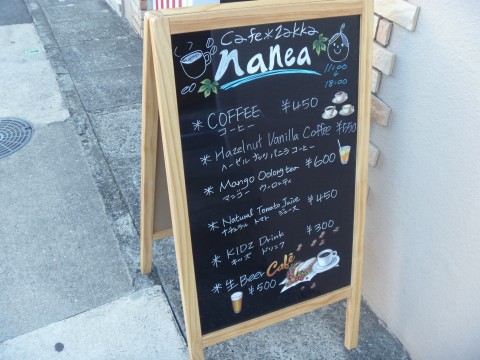 Cafe*Zakka
nanea
11:00
~
18:00
* COFFEE ¥450
コーヒー
* Hazelnut Vanilla Coffee ¥550
ヘーゼルナッツ バニラ コーヒー
* Mango Oolong tea ¥600
マンゴー ウーロンティ
* Natural Tomato Juice ¥450
ナチュラル トマト ジュース
* KIDZ Drink ¥300
キッズ ドリンク
* 生Beer ¥500
Café